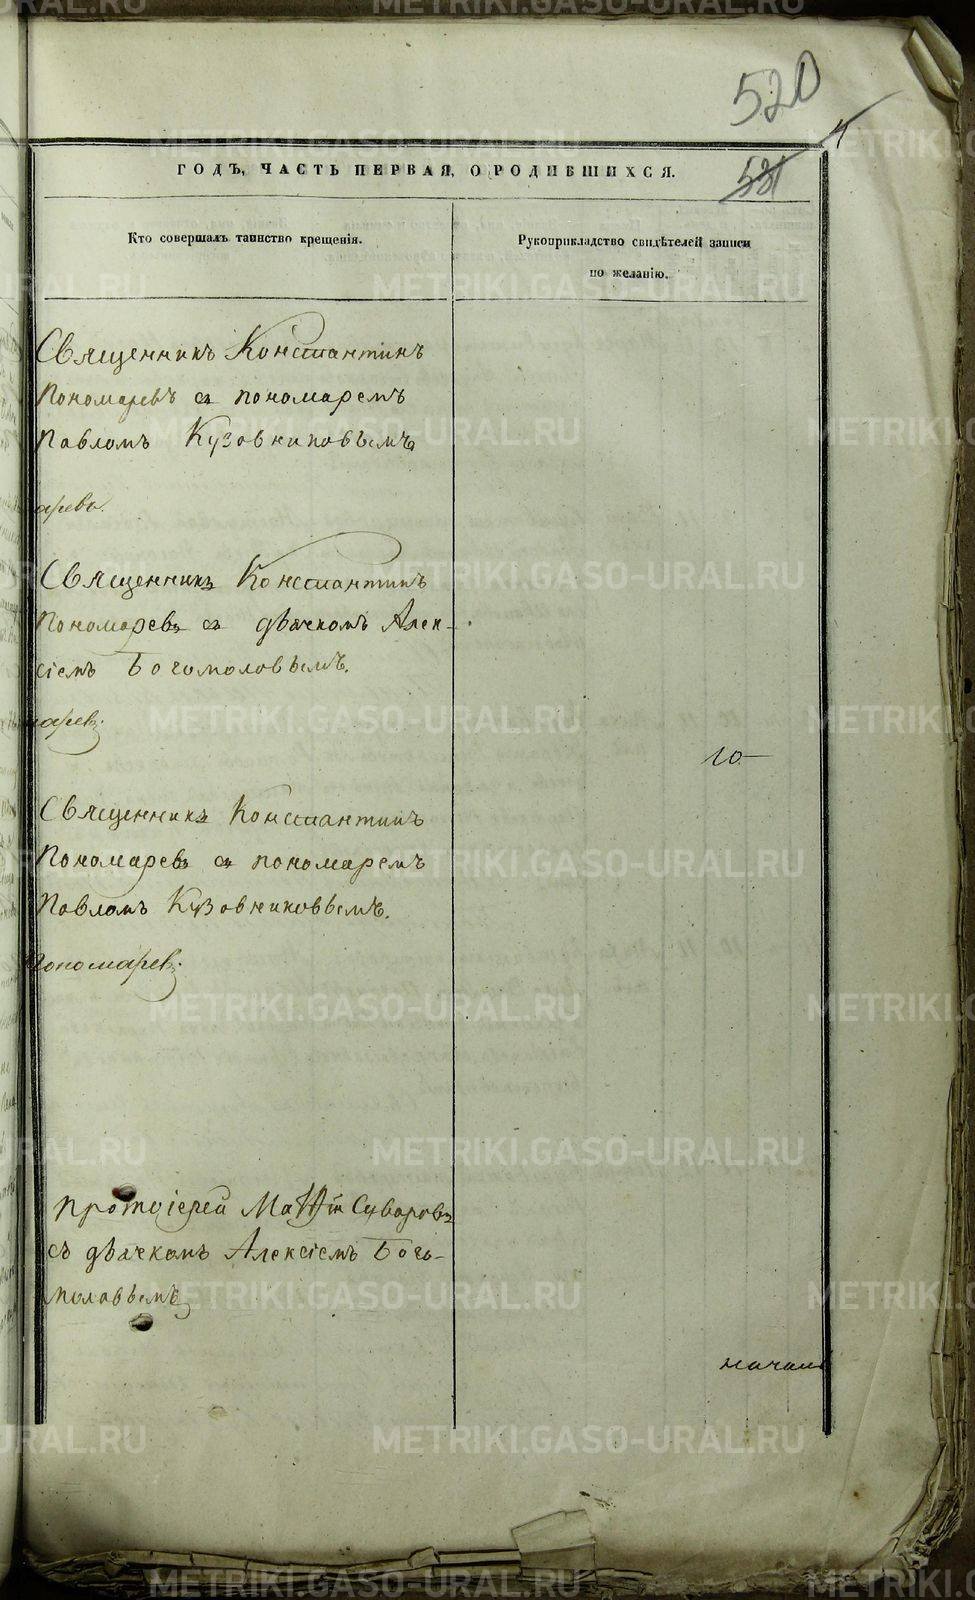 520
531
ГОДЪ, ЧАСТЬ ПЕРВАЯ, О РОДИВШИХСЯ.
Кто совершалъ таинство крещенія.
Рукоприкладство свидѣтелей записи
по желанію.
Священникъ Константинъ
Пономаревъ съ пономаремъ
Павломъ Кузовниковымъ
аревъ.
Священникъ Константинъ
Пономаревъ съ дьячкомъ Алек-
сіемъ Богомоловымъ.
аревъ.
10–
Священникъ Константинъ
Пономаревъ съ пономаремъ
Павломъ Кузовниковымъ.
Пономаревъ.
Протоіерей Суваровъ
съ дьячкомъ Алексіемъ Бого-
моловымъ
METRIKI.GASO-URAL.RU